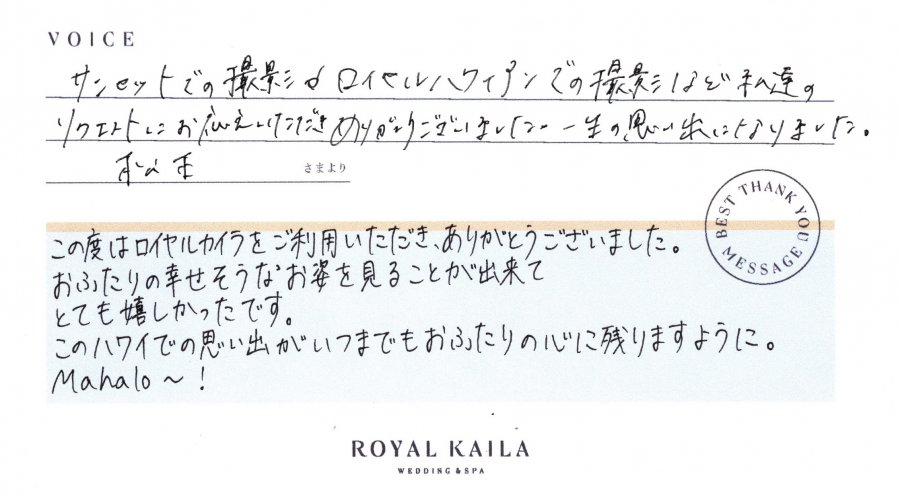 VOICE
サンセットでの撮影やロイヤルハワイアンでの撮影など私達の
リクエストにお応えいただきありがとうございました。一生の思い出になりました。
さまより
BEST THANK YOU MESSAGE
この度はロイヤルカイラをご利用いただき、ありがとうございました。
おふたりの幸せそうなお姿を見ることが出来て
とても嬉しかったです。
このハワイでの思い出がいつまでもおふたりの心に残りますように。
Mahalo～!
ROYAL KAILA
WEDDING & SPA